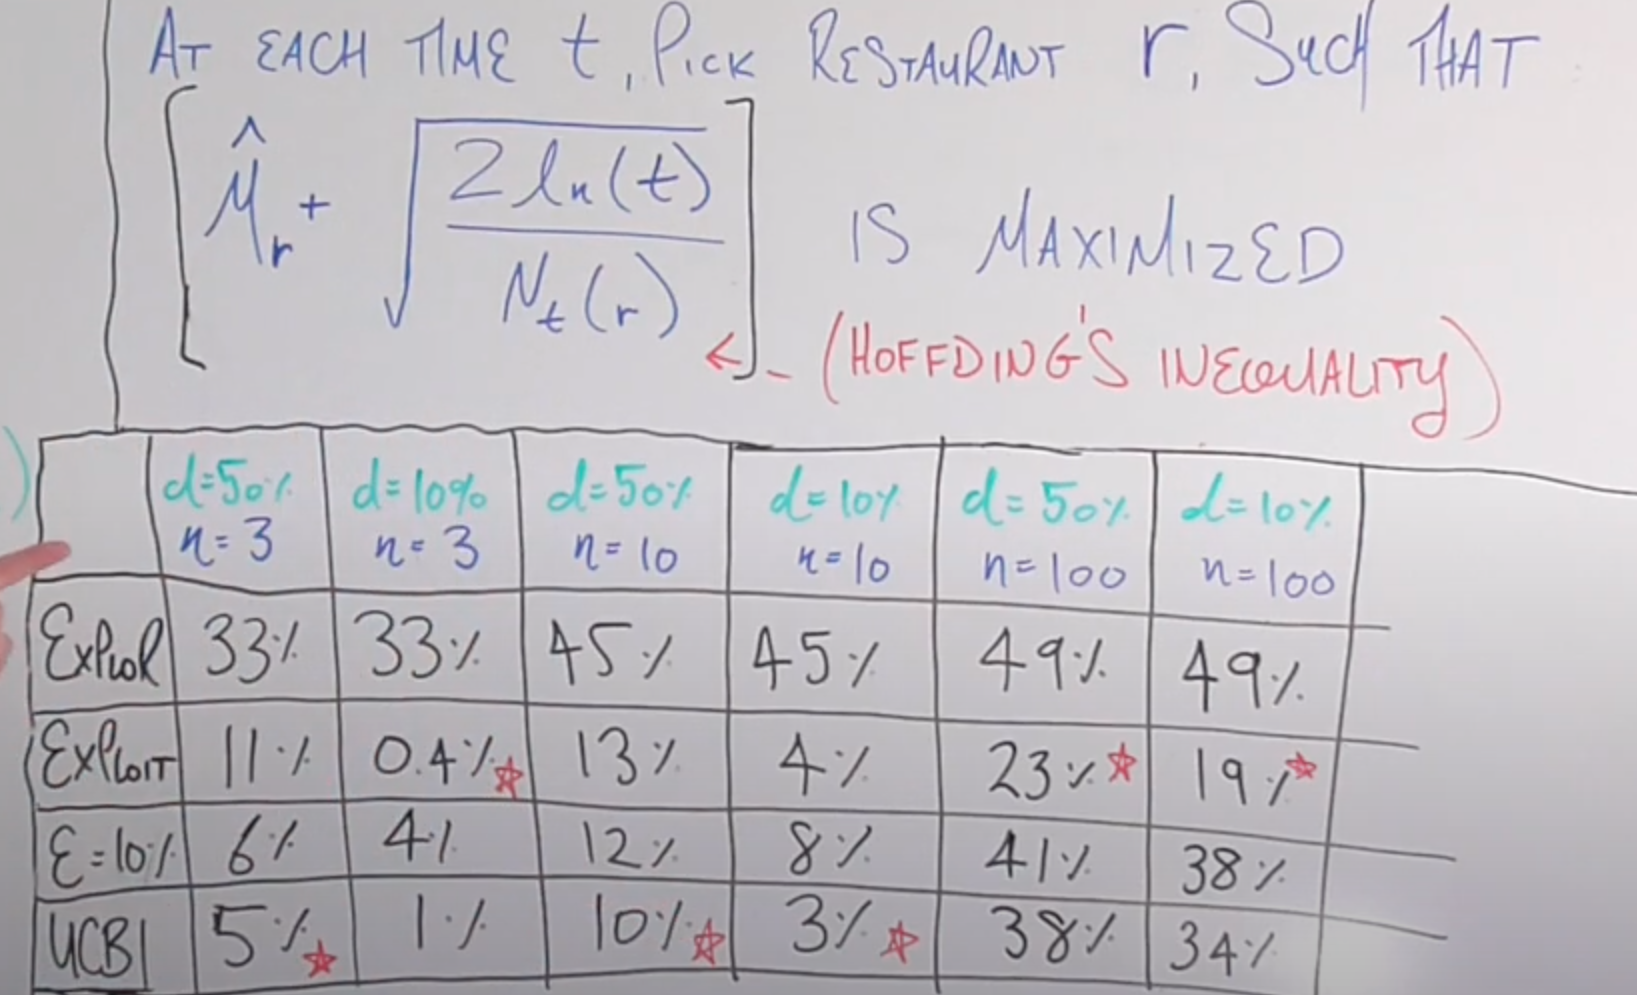 AT EACH TIME t, PICK RESTAURANT r, SUCH THAT
[ μ̂r + √(2 ln(t) / Nt(r)) ] IS MAXIMIZED
← - (HOFFDING'S INEQUALITY)
d=50% d=10% d=50% d=10% d=50% d=10%
n=3 n=3 n=10 n=10 n=100 n=100
EXPLOR 33% 33% 45% 45% 49% 49%
EXPLOIT 11% 0.4% ☆ 13% 4% 23% ☆ 19% ☆
ε=10% 6% 4% 12% 8% 41% 38%
UCB1 5% ☆ 1% 10% ☆ 3% ☆ 38% 34%